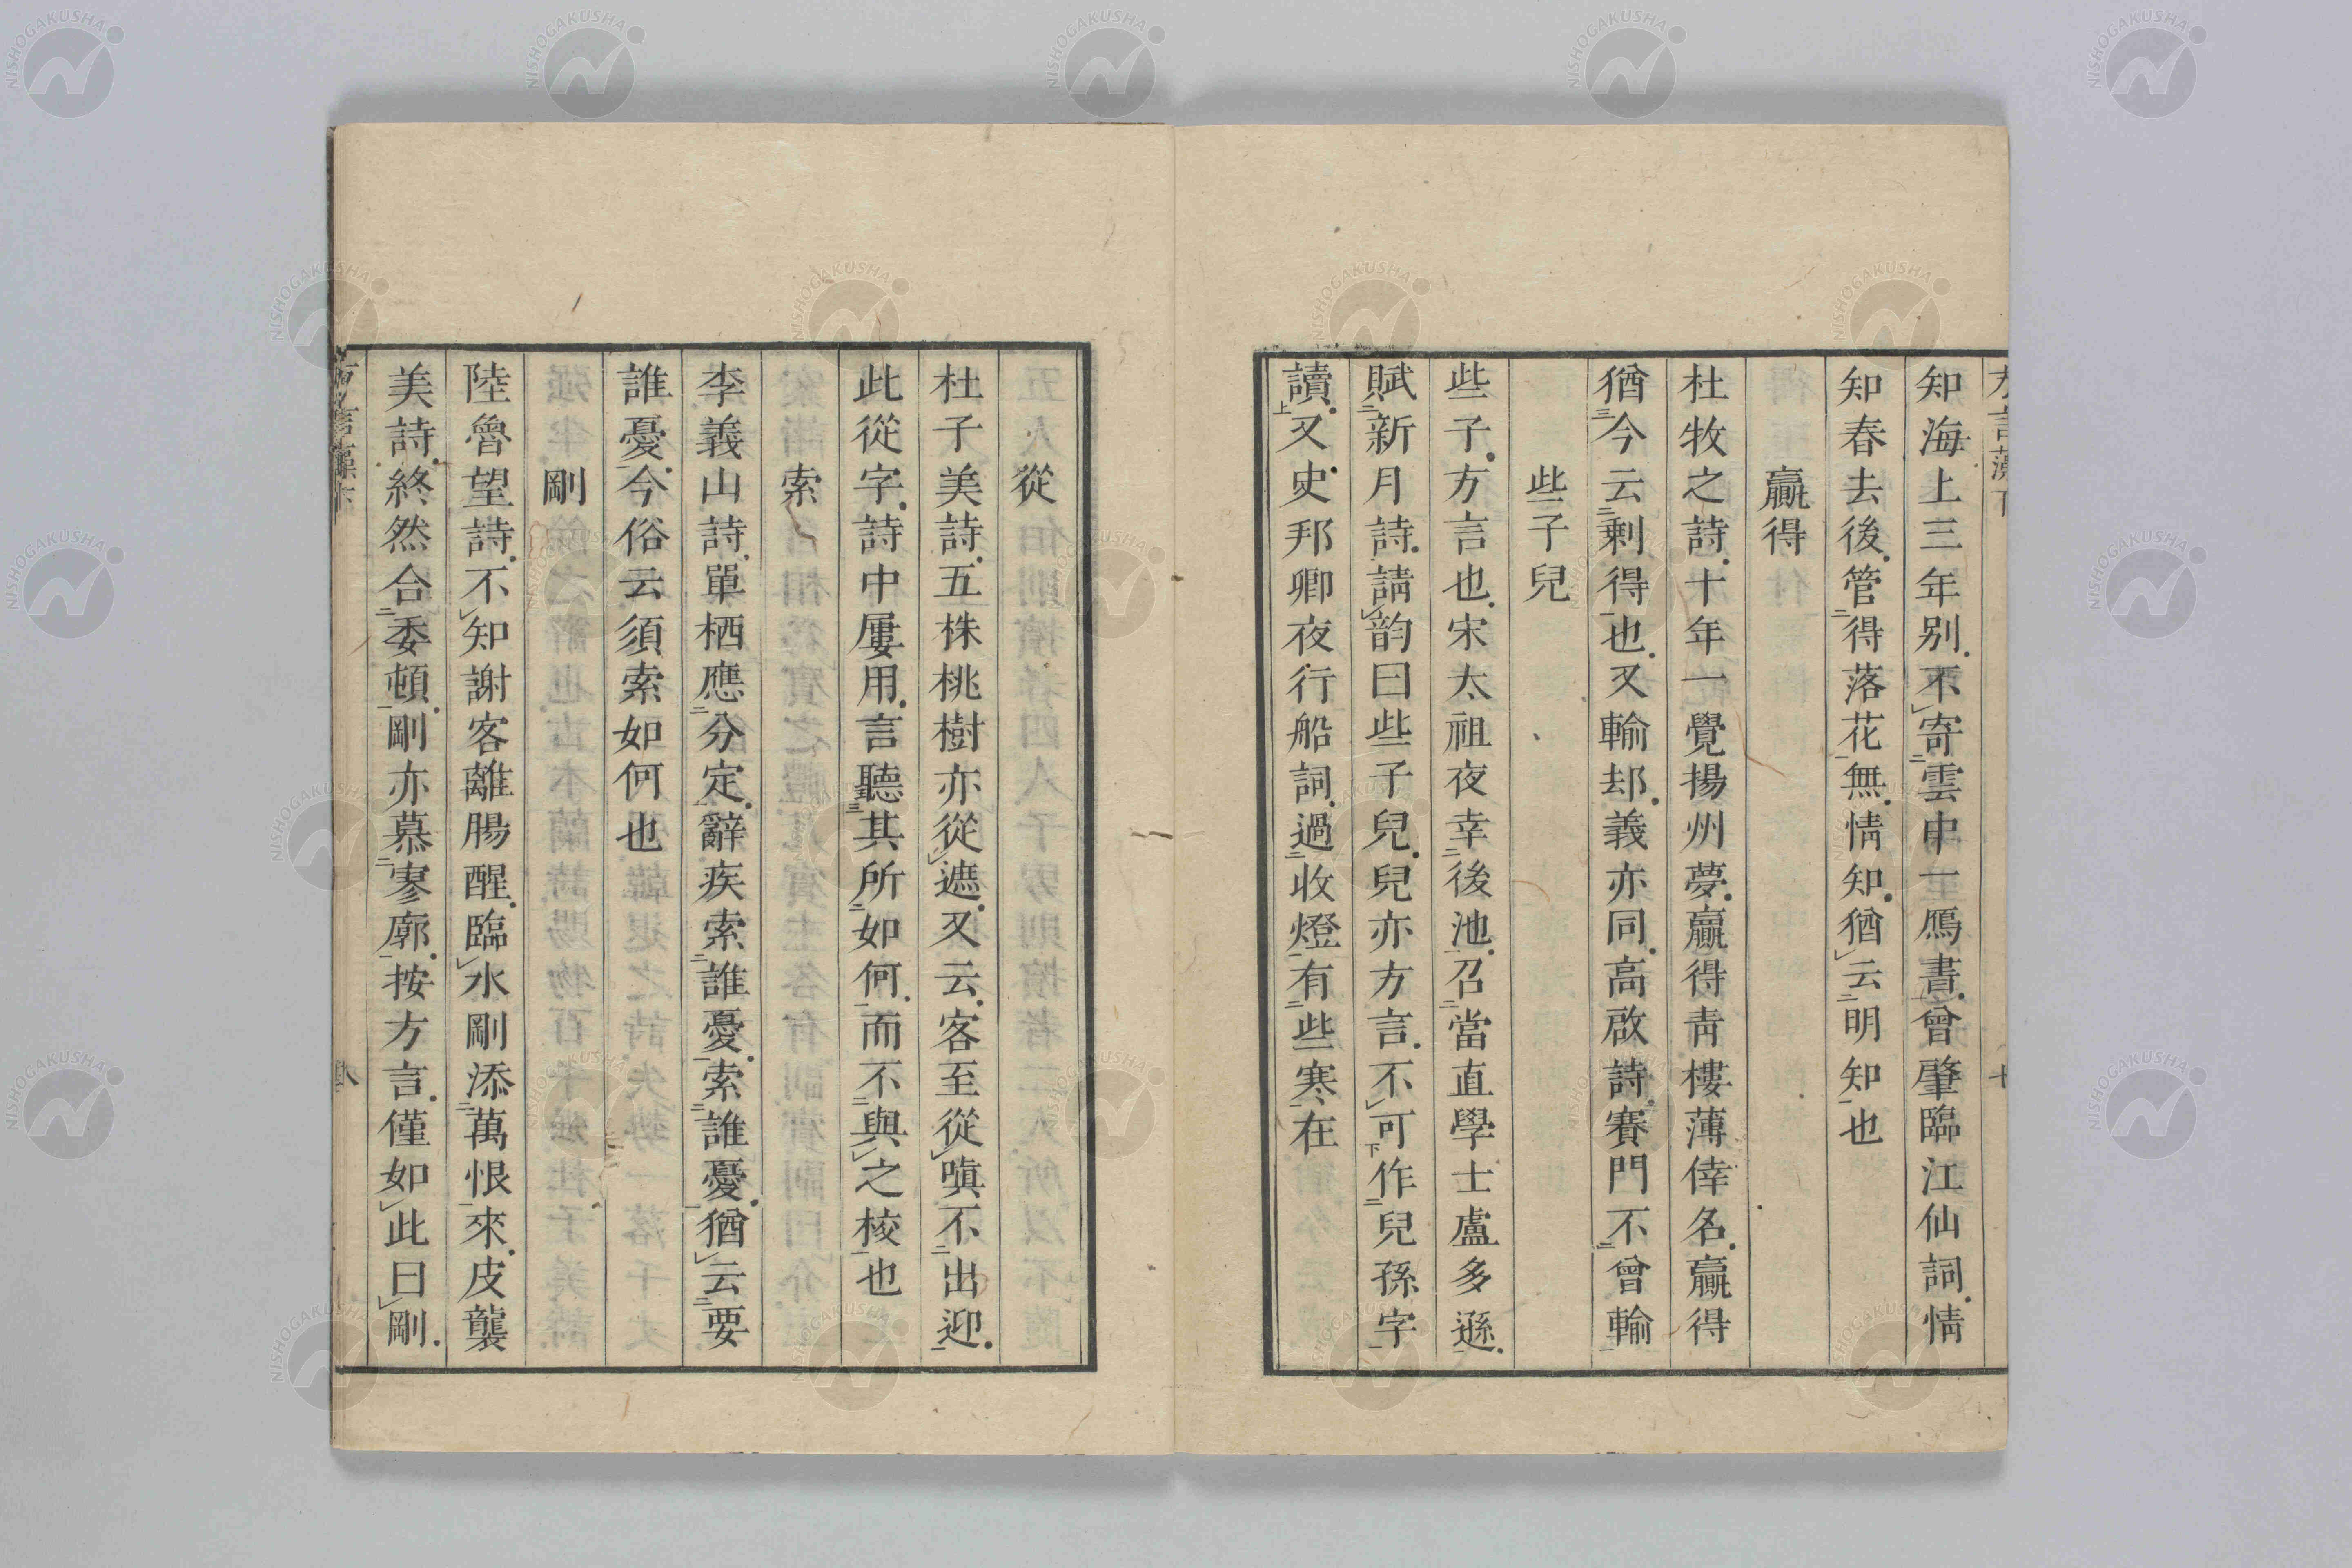 方言藻下
知海上三年别不寄雲中一鴈書曾肇臨江仙詞情
知春去後管得落花無情知猶云明知也
贏得
杜牧之詩十年一覺揚州夢贏得青樓薄倖名贏得
猶今云剩得也又輸却義亦同高啟詩賽門不曾輸
些子兒
些子方言也宋太祖夜幸後池召當直學士盧多遜
賦新月詩請韵曰些子兒兒亦方言不可作兒孫字
讀又史邦卿夜行船詞過收燈有些寒在
七
從
杜子美詩五株桃樹亦從遮又云客至從嗔不出迎
此從字詩中屢用言聽其所如何而不與之校也
索
李義山詩單栖應分定辭疾索誰憂索誰憂猶云要
誰憂今俗云須索如何也
剛
陸魯望詩不知謝客離腸醒臨水剛添萬恨來皮襲
美詩終然合委頓剛亦慕寥廓按方言僅如此曰剛
方言藻下
八
NISHOGAKUSHA